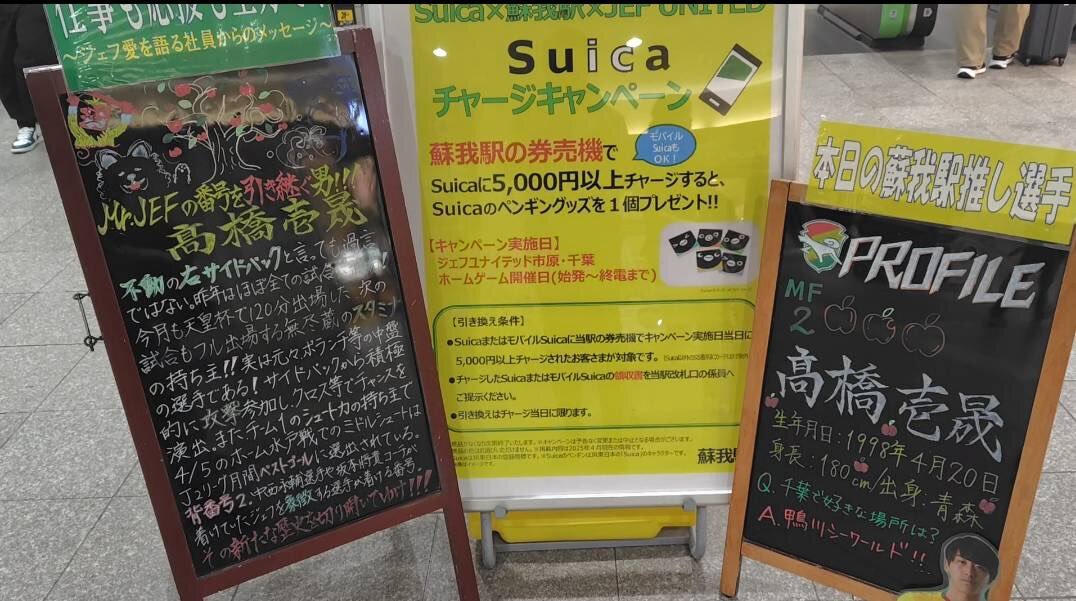 仕事も応援も全力で!
～ジェフ愛を語る社員からのメッセージ～
Mr.JEFの番号を引き継ぐ男!!!
髙橋壱晟
不動の右サイドバックと言っても過言
ではない。昨年はほぼ全ての試合
今月も天皇杯で120分出場した次の
試合もフル出場する無尽蔵のスタミナ
の持ち主!!実は元々ボランチ等の中盤
の選手である!サイドバックから積極
的に攻撃参加しクロス等でチャンスを
演出。またチーム1のシュート力の持ち主で
4/5のホーム水戸戦でのミドルシュートは
Jリーグ月間ベストゴールにも選出されている。
背番号2:中西永輔選手や坂本將貴コーチが
着けていたジェフを象徴する選手が着ける番号。
その新たな歴史を切り開いてゆけ!!!
Suica×蘇我駅×JEF UNITED
Suica
チャージキャンペーン
蘇我駅の券売機で
モバイル
Suicaも
OK!
Suicaに5,000円以上チャージすると、
Suicaのペンギングッズを1個プレゼント!!
【キャンペーン実施日】
ジェフユナイテッド市原・千葉
ホームゲーム開催日(始発～終電まで)
【引き換え条件】
●SuicaまたはモバイルSuicaに当駅の券売機でキャンペーン実施日当日に
5,000円以上チャージされたお客さまが対象です。
●チャージしたSuicaまたはモバイルSuicaの領収書を当駅改札口の係員へ
ご提示ください。
●引き換えはチャージ当日に限ります。
蘇我駅
本日の蘇我駅推し選手
PROFILE
MF
2
髙橋壱晟
生年月日:1998年4月20日
身長:180cm/出身:青森
Q.千葉で好きな場所は?
A.鴨川シーワールド!!